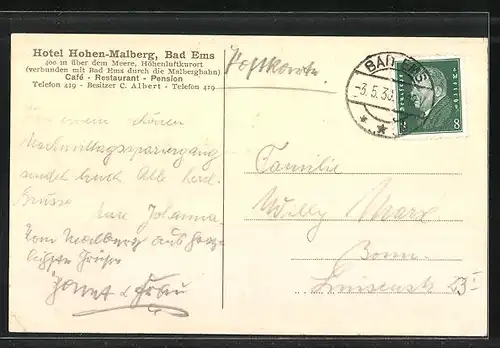 Hotel Hohen-Malberg, Bad Ems
400 m über dem Meere, Höhenluftkurort
(verbunden mit Bad Ems durch die Malbergbahn)
Café - Restaurant - Pension
Telefon 419 - Besitzer C. Albert - Telefon 419
Postkarte
BAD EMS
-3.5.30.
8 8
einem schönen
Nachmittagsspaziergang
sendet Euch Alle herzl.
Grüsse
Eure Johanna
Vom Malberg aus herz-
lichste Grüße
Familie
Willy Marx
Bonn